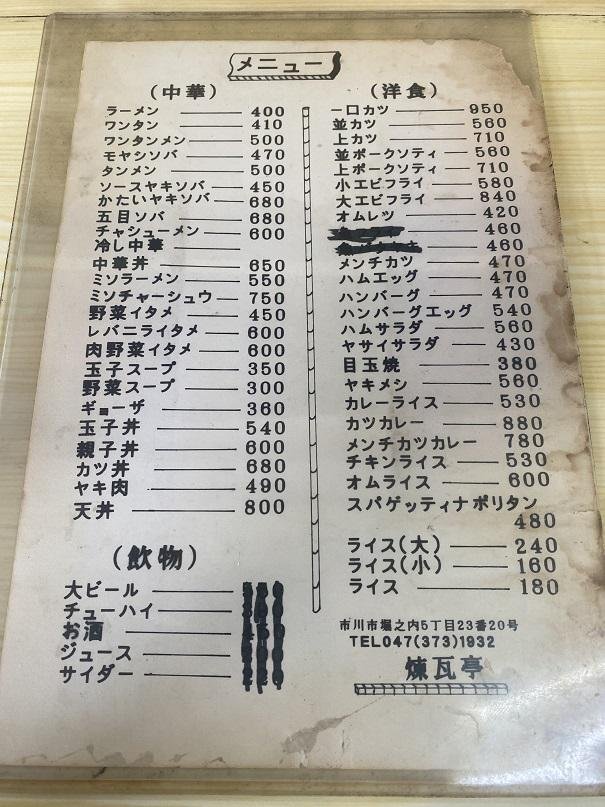 メニュー
(中華)
ラーメン 400
ワンタン 410
ワンタンメン 500
モヤシソバ 470
タンメン 500
ソースヤキソバ 450
かたいヤキソバ 680
五目ソバ 680
チャシューメン 600
冷し中華
中華丼 650
ミソラーメン 550
ミソチャーシュウ 750
野菜イタメ 450
レバニライタメ 600
肉野菜イタメ 600
玉子スープ 350
野菜スープ 300
ギョーザ 360
玉子丼 540
親子丼 600
カツ丼 680
ヤキ肉 490
天丼 800
(飲物)
大ビール
チューハイ
お酒
ジュース
サイダー
(洋食)
一口カツ 950
並カツ 560
上カツ 710
並ポークソティ 560
上ポークソティ 710
小エビフライ 580
大エビフライ 840
オムレツ 420
460
460
メンチカツ 470
ハムエッグ 470
ハンバーグ 470
ハンバーグエッグ 540
ハムサラダ 560
ヤサイサラダ 430
目玉焼 380
ヤキメシ 560
カレーライス 530
カツカレー 880
メンチカツカレー 780
チキンライス 530
オムライス 600
スパゲッティナポリタン
480
ライス(大) 240
ライス(小) 160
ライス 180
市川市堀之内5丁目23番20号
TEL047(373)1932
煉瓦亭